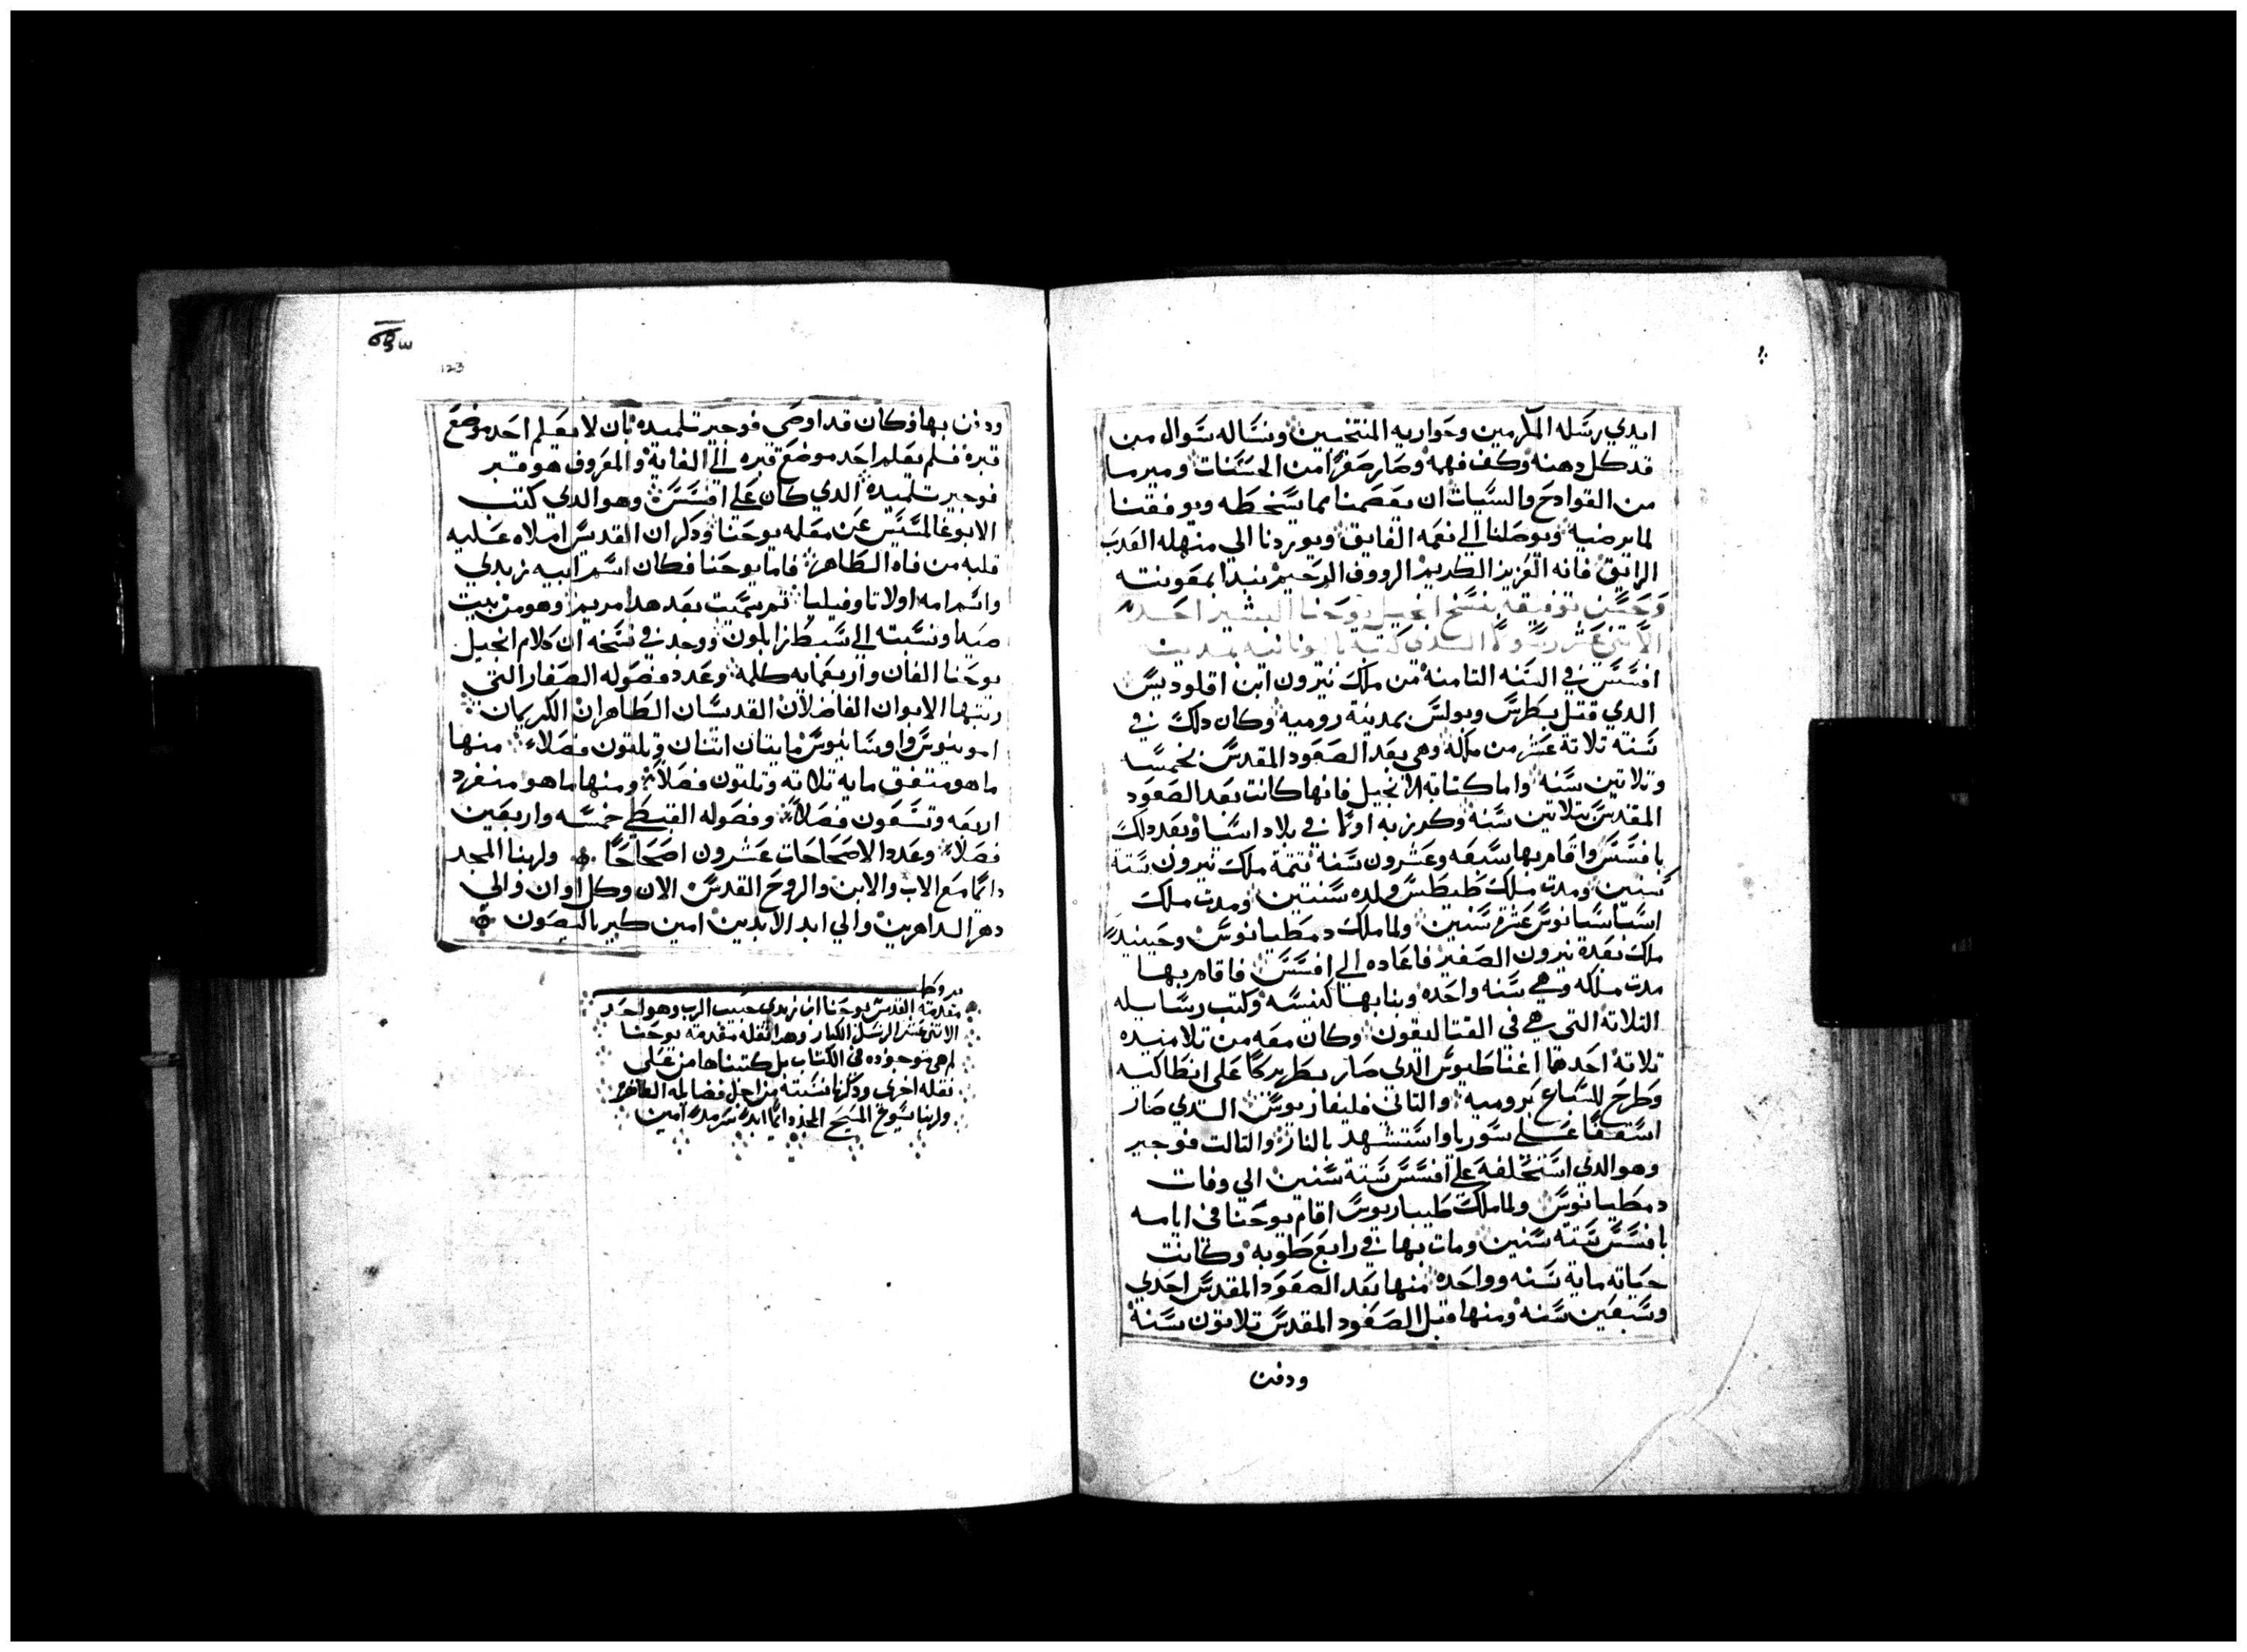 ايدي رسله المكرمين وحواريه المنتخبين ونساله سوال من
قد كل دهنه وكف فهمه وصار صفرا من الحسنات ومير سا
من القوادح والسيات ان يعصمنا مما يسخطه ويوفقنا
لما يرضيه ويوصلنا الي نعمه الفايق ويوردنا الي منهله العدب
الرايق فانه العزيز الكريم الرووف الرحيم نبدا بمعونته
وحسن توفيقه بنسخ انجيل يوحنا البشير احد
الاتني عشر رسولا الدي كتبه باليونانيه بمدينت
افسس في السنه التامنة من ملك نيرون ابن اقلوديس
الدي قتل بطرس وبولس بمدينة روميه وكان دلك في
سنة تلاتة عشر من ملكه وهي بعد الصعود المقدس بخمسا
وتلاتين سنه واما كتابة الانجيل فانها كانت بعد الصعود
المقدس بتلاتين سنه وكرز به اولا في بلاد اسيا وبعد دلك
بافسس واقام بها سبعه وعشرون سنه تتمة ملك نيرون ستة
سنين ومدت ملك طيطس وولده سنتين ومدت ملك
اسباسيانوس عشرة سنين ولما ملك دمطيانوس وحينيد
ملك بعده نيرون الصغير فاعاده الي افسس فاقام بها
مدت ملكه وهي سنه واحده وبنا بها كنيسه وكتب رسايله
التلاتة التي هي في القتاليقون وكان معه من تلاميده
تلاتة احدها اغناطيوس الدي صار بطريركا علي انطاكيه
وطرح للسباع برومية والتاني فليفاربوس الدي صار
اسقفا علي سوريا واستشهد بالنار والتالت فوجير
وهو الدي استخلفه علي افسس ستة سنين الي وفات
دمطيانوس ولما ملك طيباريوس اقام يوحنا في ايامه
بافسس ستة سنين ومات بها في رابع طوبه وكانت
حياته ماية سنه وواحده منها بعد الصعود المقدس احدي
وسبعين سنه ومنها قبل الصعود المقدس تلاتون سنة
ودفن
123
ودفن بها وكان قد اوصي فوجير تلميده بان لا يعلم احد موضع
قبره فلم يعلم احد موضع قبره الي الغاية والمعروف هو قبر
فوجير تلميده الدي كان علي افسس وهو الدي كتب
الابوغالمسيس عن معلمه يوحنا ودكر ان القديس املاه عليه
قلبه من فاه الطاهر فاما يوحنا فكان اسم ابيه زبدي
واسم امه اولا تاوفيليا تم سميت بعد هدا مريم وهو من بيت
صيدا ونسبته الي سبط زابلون ووجد في نسخه ان كلام انجيل
يوحنا الفان واربعمايه كلمه وعدد فصوله الصغار التي
رتبها الابوان الفاضلان القدسان الطاهران الكريمان
امونيوس واوسابيوس مايتان اتنان وتلتون فصلا منها
ما هو متفق مايه تلاته وتلتون فصلا ومنها ما هو منفرد
اربعه وتسعون فصلا وفصوله القبطي خمسه واربعين
فصلا وعدد الاصحاحات عشرون اصحاحا ولهنا المجد
دايما مع الاب والابن والروح القدس الان وكل اوان والي
دهر الداهرين والي ابد الابدين امين كيرياليصون
مقدمة القديس يوحنا ابن زبدي حبيب الرب وهو احد
الاتني عشر الرسل الكبار وهده النقله مقدمة يوحنا
لم هي موجوده في الكتاب بل كتبناها من علي
نقله اخري ودكرنا نسبته من اجل فضايله الطاهره
ولربنا يسوع المسيح المجد دايما ابدا سرمدا امين